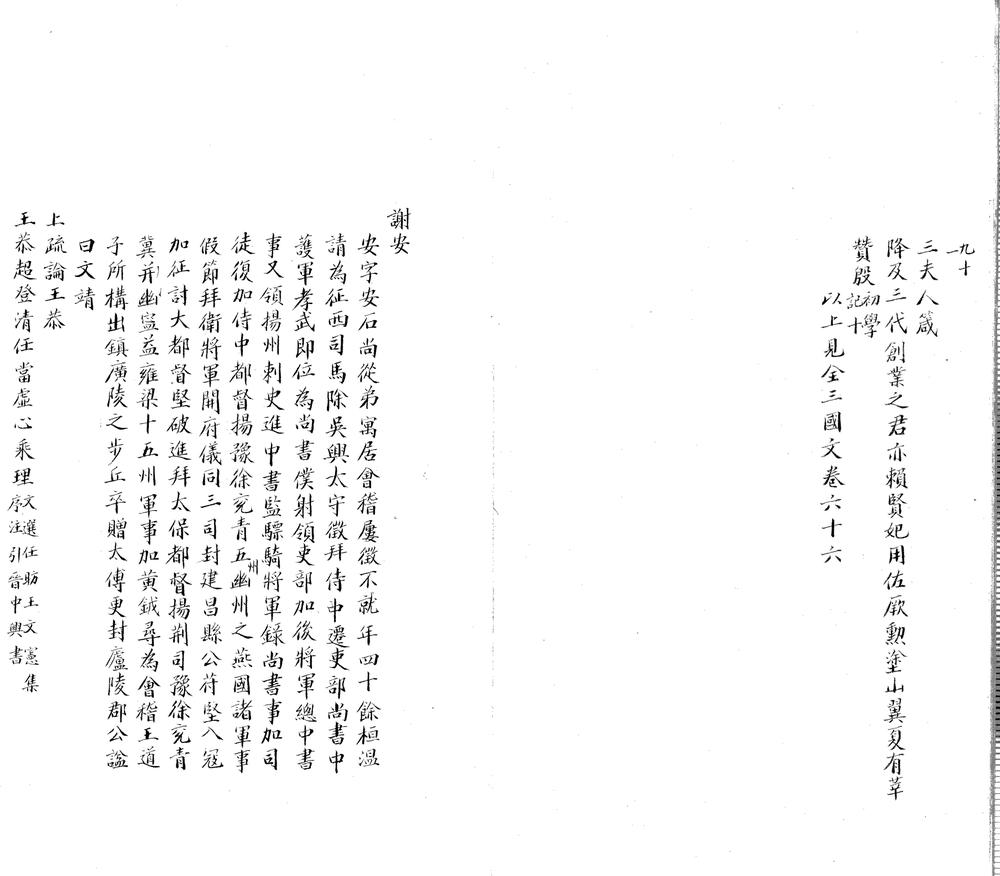 九十一
三夫人箴
降及三代創業之君亦賴賢妃用佐厥勲塗山翼夏有莘
贊殷初學記十
以上見全三國文卷六十六
謝安
安字安石尚從弟寓居會稽屢徵不就年四十餘桓温
請為征西司馬除吳興太守徵拜侍中遷吏部尚書中
護軍孝武即位為尚書僕射領吏部加後將軍總中書
事又領揚州刺史進中書監驃騎將軍錄尚書事加司
徒復加侍中都督揚豫徐兖青五州幽州之燕國諸軍事
假節拜衛將軍開府儀同三司封建昌縣公苻堅入寇
加征討大都督堅破進拜太保都督揚荆司豫徐兖青
冀并幽寍益雍梁十五州軍事加黄鉞尋為會稽王道
子所構出鎮廣陵之步丘卒贈太傅更封廬陵郡公謚
曰文靖
上疏論王恭
王恭超登清任當虚心乘理文選任昉王文憲集序注引晉中興書